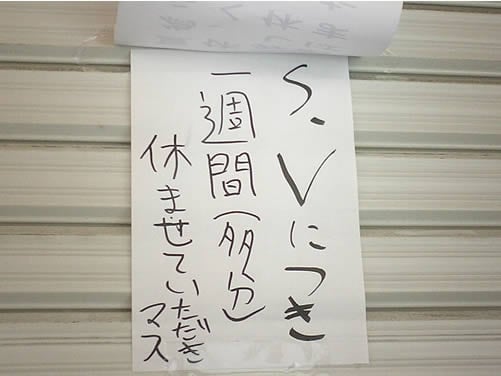 S.Vにつき
一週間(多分)
休ませていただき
マス